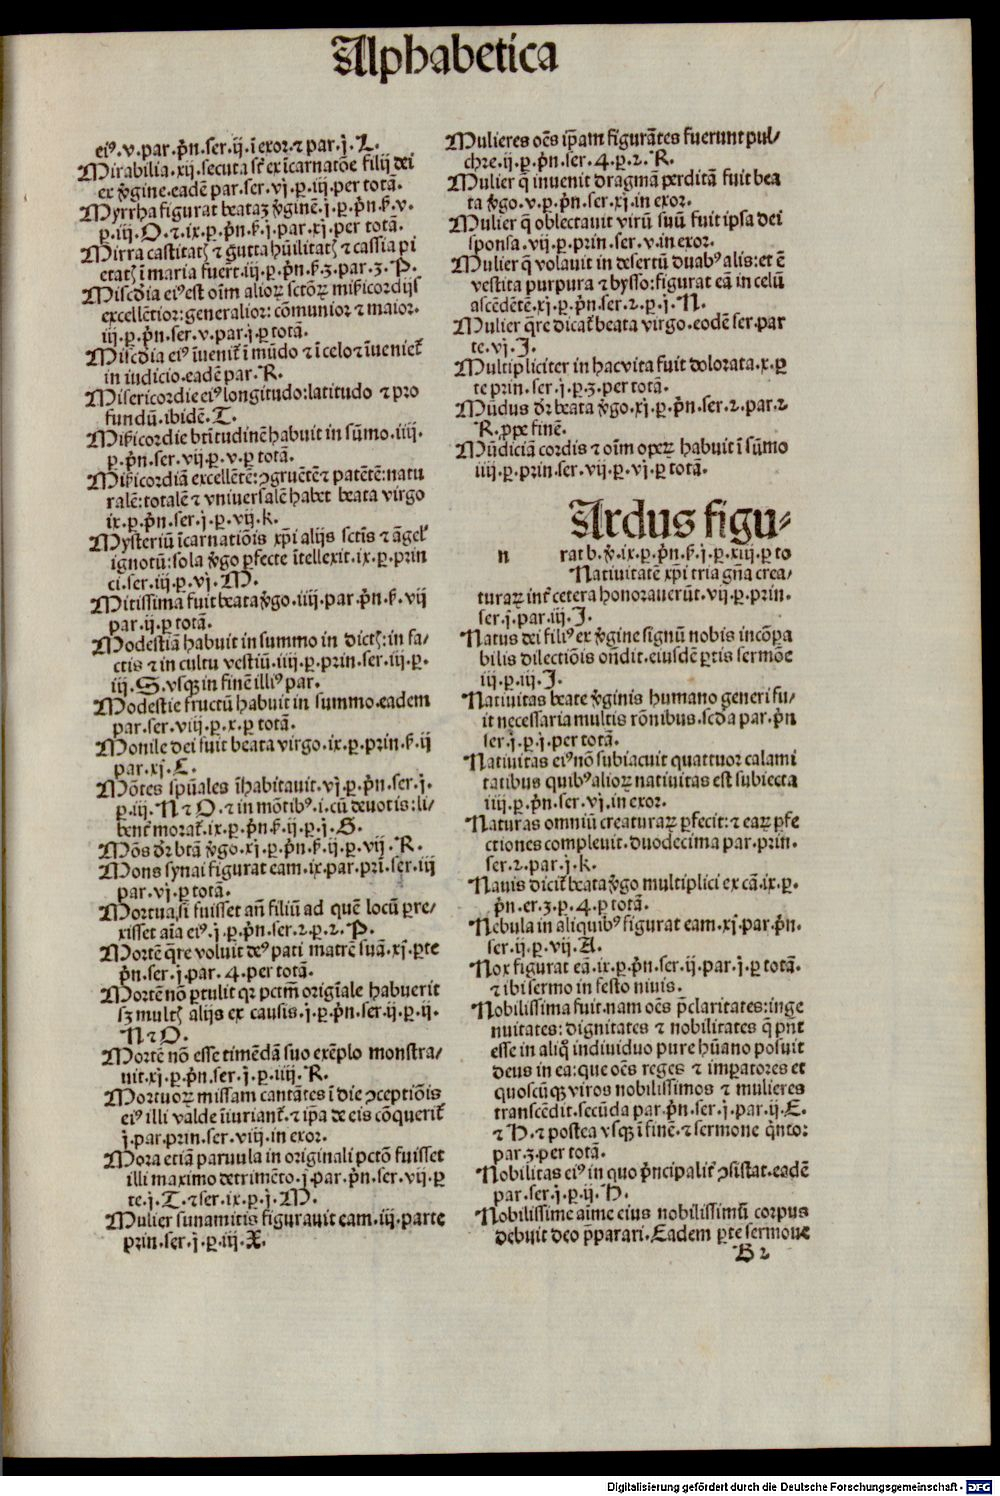 Alphabetica
eiꝰ.v.par.p̄n.ser.ij.ī exor.⁊ par.j.L.
Mirabilia.xij.secuta st̄ ex īcarnatōe filij dei
ex v̄gine.eadē par.ser.vj.p̲.iij.per totā.
Myrrha figurat beataꝫ v̄ginē.j.p̲.p̄n.ẜ.v.
p̲.iij.O.⁊.ix.p̲.p̄n.ẜ.j.par.xj.per totā.
Mirra castitatꝭ ⁊ gutta hūilitatꝭ ⁊ cassia pi
etatꝭ ī maria fuer̄t.iij.p̲.p̄n.ẜ.3.par.3.P.
Misc̄dia eiꝰ est oīm alioꝝ sctōꝝ mīẜicordijs
excellētior:generalior:cōmunior ⁊ maior.
iij.p̲.p̄n.ser.v.par.j.p̲ totā.
Misc̄dia eiꝰ īuenit̄ ī mūdo ⁊ ī celo ⁊ īueniet̄
in iudicio.eadē par.R.
Misericordie eiꝰ longitudo:latitudo ⁊ pro
fundū.ibidē.T.
Miẜicordie btītudinē habuit in sūmo.iiij.
p̲.p̄n.ser.vij.p̲.v.p̲ totā.
Miẜicordiā excellētē:ꝯgruētē ⁊ patētē:natu
ralē:totalē ⁊ vniuersalē habet beata virgo
ix.p̲.p̄n.ser.j.p̲.vij.k.
Mysteriū īcarnatiōis xp̄i alijs sctīs ⁊ āgel̄
ignotū:sola v̄go p̲fecte ītellexit.ix.p̲.prin
ci.ser.iij.p̲.vj.M.
Mitissima fuit beata v̄go.iiij.par.p̄n.ẜ.vij
par.ij.p̲ totā.
Modestiā habuit in summo in dictꝭ:in fa⸗
ctis ⁊ in cultu vestiū.iiij.p̲.prin.ser.iij.p̲.
iij.S.vsqꝫ in finē illiꝰ par.
Modestie fructū habuit in summo.eadem
par.ser.viij.p̲.x.p̲ totā.
Monile dei fuit beata virgo.ix.p̲.prin.ẜ.ij
par.xj.C.
Mōtes sp̄uales īhabitauit.vj.p̲.p̄n.ser.j.
p̲.iij.N ⁊ O.⁊ in mōtibꝰ.i.cū deuotis:li⸗
bent̄ morat̄.ix.p̲.p̄n.ẜ.ij.p̲.j.S.
Mōs dr̄ btā v̄go.xj.p̲.p̄n.ẜ.ij.p̲.vij.R.
Mons synai figurat eam.ix.par.prī.ser.iij
par.vj.p̲ totā.
Mortua,si fuisset an̄ filiū ad quē locū p̲re⸗
xisset aīa eiꝰ.j.p̲.p̄n.ser.2.p̲.2.P.
Mortē q̄re voluit deꝰ pati matrē suā.xj.p̲te
p̄n.ser.j.par.4.per totā.
Mortē nō p̲tulit qꝛ pctm̄ origīale habuerit
sꝫ multꝭ alijs ex causis.j.p̲.p̄n.ser.ij.p̲.ij.
N ⁊ O.
Mortē nō esse timēdā suo exēplo monstra⸗
uit.xj.p̲.p̄n.ser.j.p̲.iiij.R.
Mortuoꝝ missam cantātes ī die ꝯceptiōis
eiꝰ illi valde īiuriant̄.⁊ ip̄a de eis cōquerit̄
j.par.prin.ser.viij.in exor.
Mora etiā paruula in originali pctō fuisset
illi maximo detrimēto.j.par.p̄n.ser.vij.p̲
te.j.T.⁊ ser.ix.p̲.j.M.
Mulier sunamitis figurauit eam.iij.parte
prin.ser.j.p̲.iij.X.
Mulieres oēs ip̄am figurātes fuerunt pul⸗
chre.ij.p̲.p̄n.ser.4.p̲.2.R.
Mulier q̄ inuenit dragmā p̲ditā fuit bea
ta v̄go.v.p̲.p̄n.ser.xj.in exor.
Mulier q̄ oblectauit virū suū fuit ipsa dei
sponsa.vij.p̲.prin.ser.v.in exor.
Mulier q̄ volauit in desertū duabꝰ alis:et ē
vestita purpura ⁊ bysso:figurat eā in celū
ascēdētē.xj.p̲.p̄n.ser.2.p̲.j.N.
Mulier q̄re dicat̄ beata virgo.eodē ser.par
te.vj.J.
Multipliciter in hac vita fuit dolorata.x.p̲
te prin.ser.j.p̲.3.per totā.
Mūdus dr̄ beata v̄go.xj.p̲.p̄n.ser.2.par.2
R.ꝓpe finē.
Mūdiciā cordis ⁊ oīm opeꝝ habuit ī sūmo
iiij.p̲.prin.ser.vij.p̲.vj.p̲ totā.
Ardus figu⸗
n rat b.v̄.ix.p̲.p̄n.ẜ.j.p̲.xiij.p̲ to
Natiuitatē xp̄i tria gn̄a crea⸗
turaꝝ int̄ cetera honorauerūt.vij.p̲.prin.
ser.j.par.iij.J.
Natus dei filiꝰ ex v̄gine signū nobis incōp̲a
bilis dilectiōis on̄dit.eiusdē p̲tis sermōe
iij.p̲.iij.J.
Natiuitas beate v̄ginis humano generi fu⸗
it necessaria multis rōnibus.scd̄a par.p̄n
ser.j.p̲.j.per totā.
Natiuitas eiꝰ nō subiacuit quattuor calami
tatibus quibꝰ alioꝝ natiuitas est subiecta
iiij.p̲.p̄n.ser.vj.in exor.
Naturas omniū creaturaꝝ p̲fecit:⁊ eaꝝ p̲fe
ctiones compleuit.duodecima par.prin.
ser.2.par.j.k.
Nauis dicit̄ beata v̄go multiplici ex cā.ix.p̲.
p̄n.er.3.p̲.4.p̲ totā.
Nebula in aliquibꝰ figurat eam.xj.par.p̄n.
ser.ij.p̲.vij.A.
Nox figurat eā.ix.p̲.p̄n.ser.ij.par.j.p̲ totā.
⁊ ibi sermo in festo niuis.
Nobilissima fuit.nam oēs p̄claritates:inge
nuitates:dignitates ⁊ nobilitates q̄ pn̄t
esse in aliq̊ indiuiduo pure hūano posuit
deus in ea:que oēs reges ⁊ imp̲atores et
quoscūqꝫ viros nobilissimos ⁊ mulieres
transcēdit.secūda par.p̄n.ser.j.par.ij.E.
⁊ H.⁊ postea vsqꝫ ī finē.⁊ sermone q̄nto:
par.3.per totā.
Nobilitas eiꝰ in quo p̄ncipalit̄ ꝯsistat.eadē
par.ser.j.p̲.ij.H.
Nobilissime aīme eius nobilissimū corpus
debuit deo p̄parari.Eadem p̲te sermone
B 2
Digitalisierung gefördert durch die Deutsche Forschungsgemeinschaft - DFG